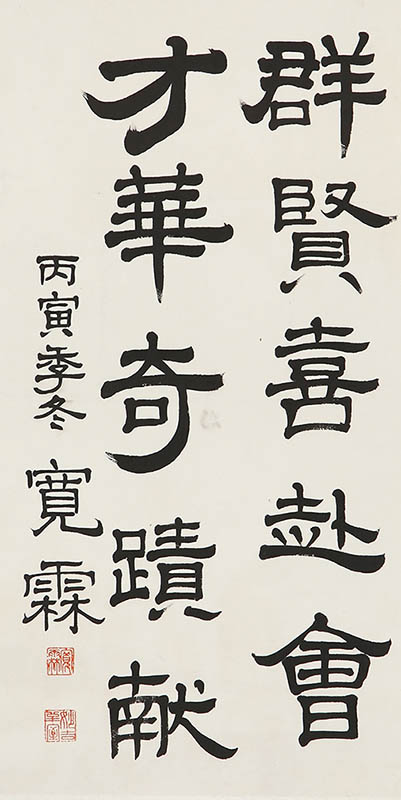 群賢喜赴會
才華奇蹟献
丙寅季冬 寬霖